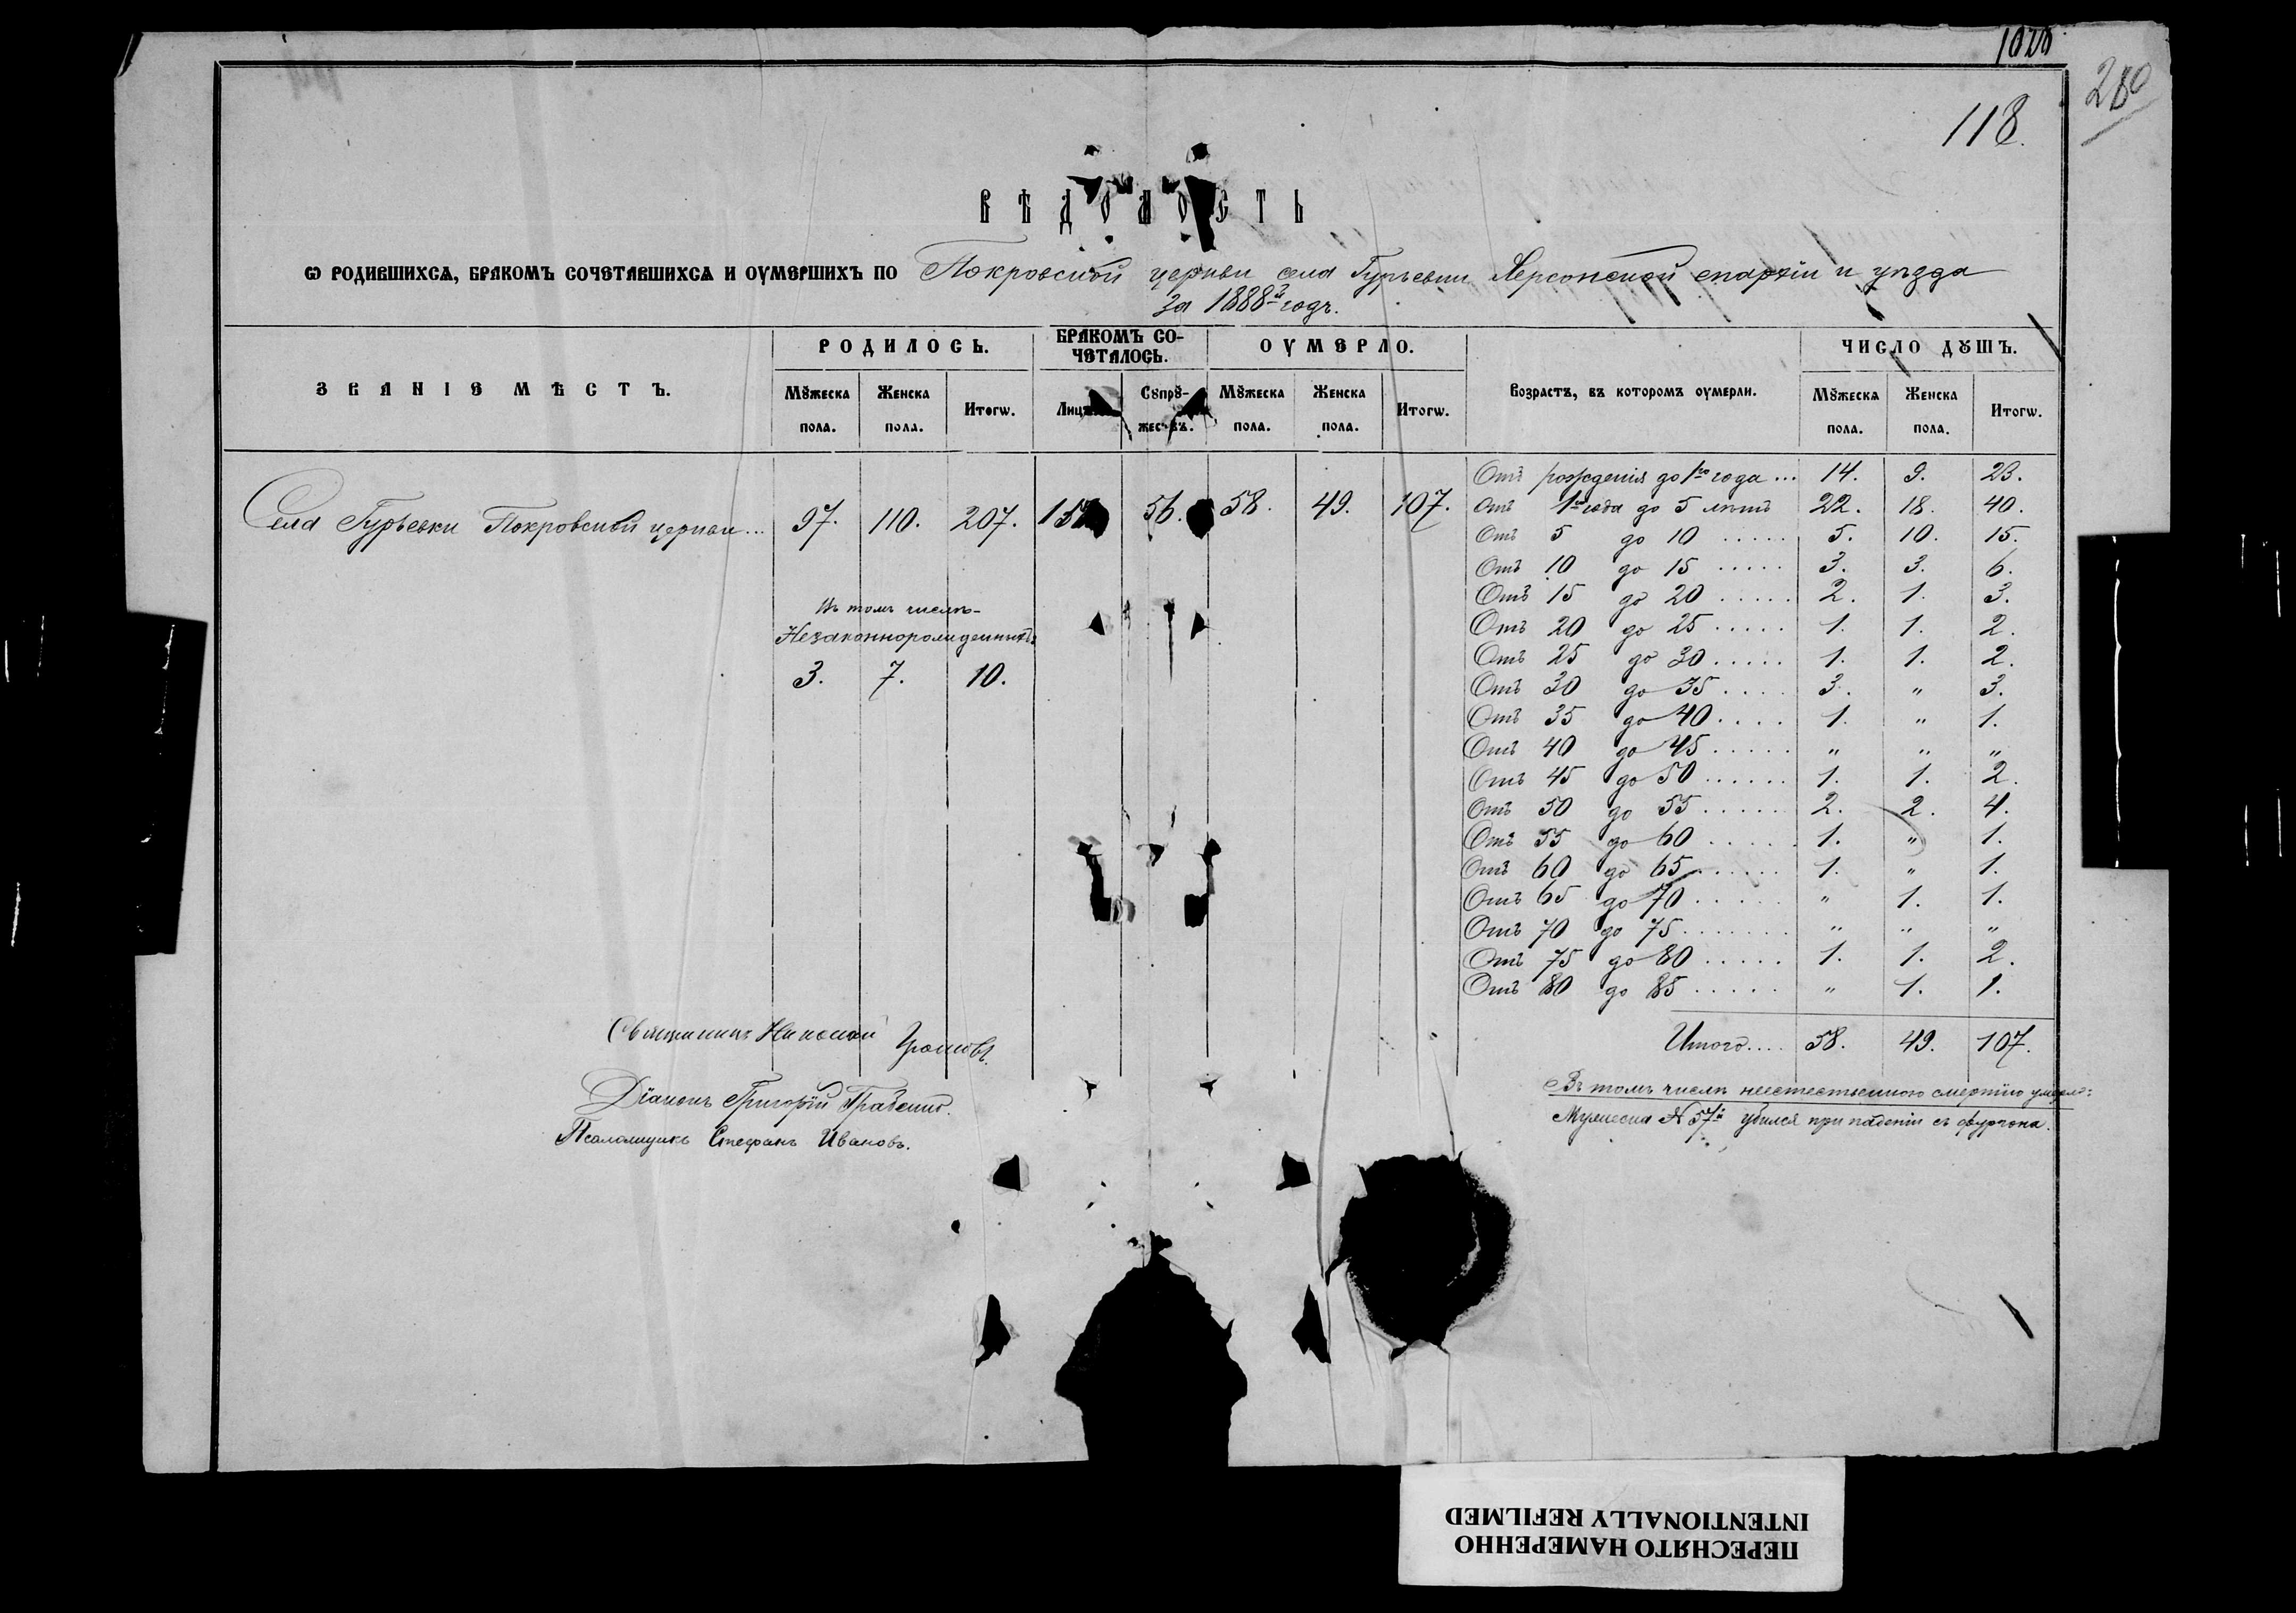 1028
280
118.
ВѢДОМОСТЬ
Ѡ РОДИВШИХСѦ, БРАКОМЪ СОЧЕТАВШИХСѦ И ОУМЕРШИХЪ ПО Покровской церкви села Гурьевки Херсонской епархіи и уѣзда
за 1888й годъ.
ЗВАНІЕ МѢСТЪ. РОДИЛОСЬ. БРАКОМЪ СО-ЧЕТАЛОСЬ. ОУМЕРЛО. Возрастъ, въ которомъ оумерли. ЧИСЛО ДꙊШЪ.
МꙊжеска пола. Женска пола. Итогѡ. Лицъ СꙊпрꙊ-жес въ. МꙊжеска пола. Женска пола. Итогѡ. МꙊжеска пола. Женска пола. Итогѡ.
Села Гурьевки Покровской церкви... 97. 110. 207. 56. 58. 49. 107.
Въ томъ числѣ-
Незаконнорожденныхъ:
3. 7. 10.
Отъ рожденія до 1го года ... 14. 9. 23.
Отъ 1го года до 5 лѣтъ 22. 18. 40.
Отъ 5 до 10 ..... 5. 10. 15.
Отъ 10 до 15 ..... 3. 3. 6.
Отъ 15 до 20 ..... 2. 1. 3.
Отъ 20 до 25 ..... 1. 1. 2.
Отъ 25 до 30 ..... 1. 1. 2.
Отъ 30 до 35 .... 3. " 3.
Отъ 35 до 40 .... 1. " 1.
Отъ 40 до 45 ..... " " "
Отъ 45 до 50 ...... 1. 1. 2.
Отъ 50 до 55 ...... 2. 2. 4.
Отъ 55 до 60 ...... 1. " 1.
Отъ 60 до 65 ...... 1. " 1.
Отъ 65 до 70 ...... " 1. 1.
Отъ 70 до 75 ....... " " "
Отъ 75 до 80 ..... 1. 1. 2.
Отъ 80 до 85 ..... " 1. 1.
Итого.... 58. 49. 107.
Въ томъ числѣ неестественною смертію умерло:
Мужеска №37й убился при паденіи съ фургона.
Священникъ Николай
Діаконъ Григорій
Псаломщикъ Стефанъ Ивановъ.
INTENTIONALLY REFILMED
ПЕРЕСНЯТО НАМЕРЕННО